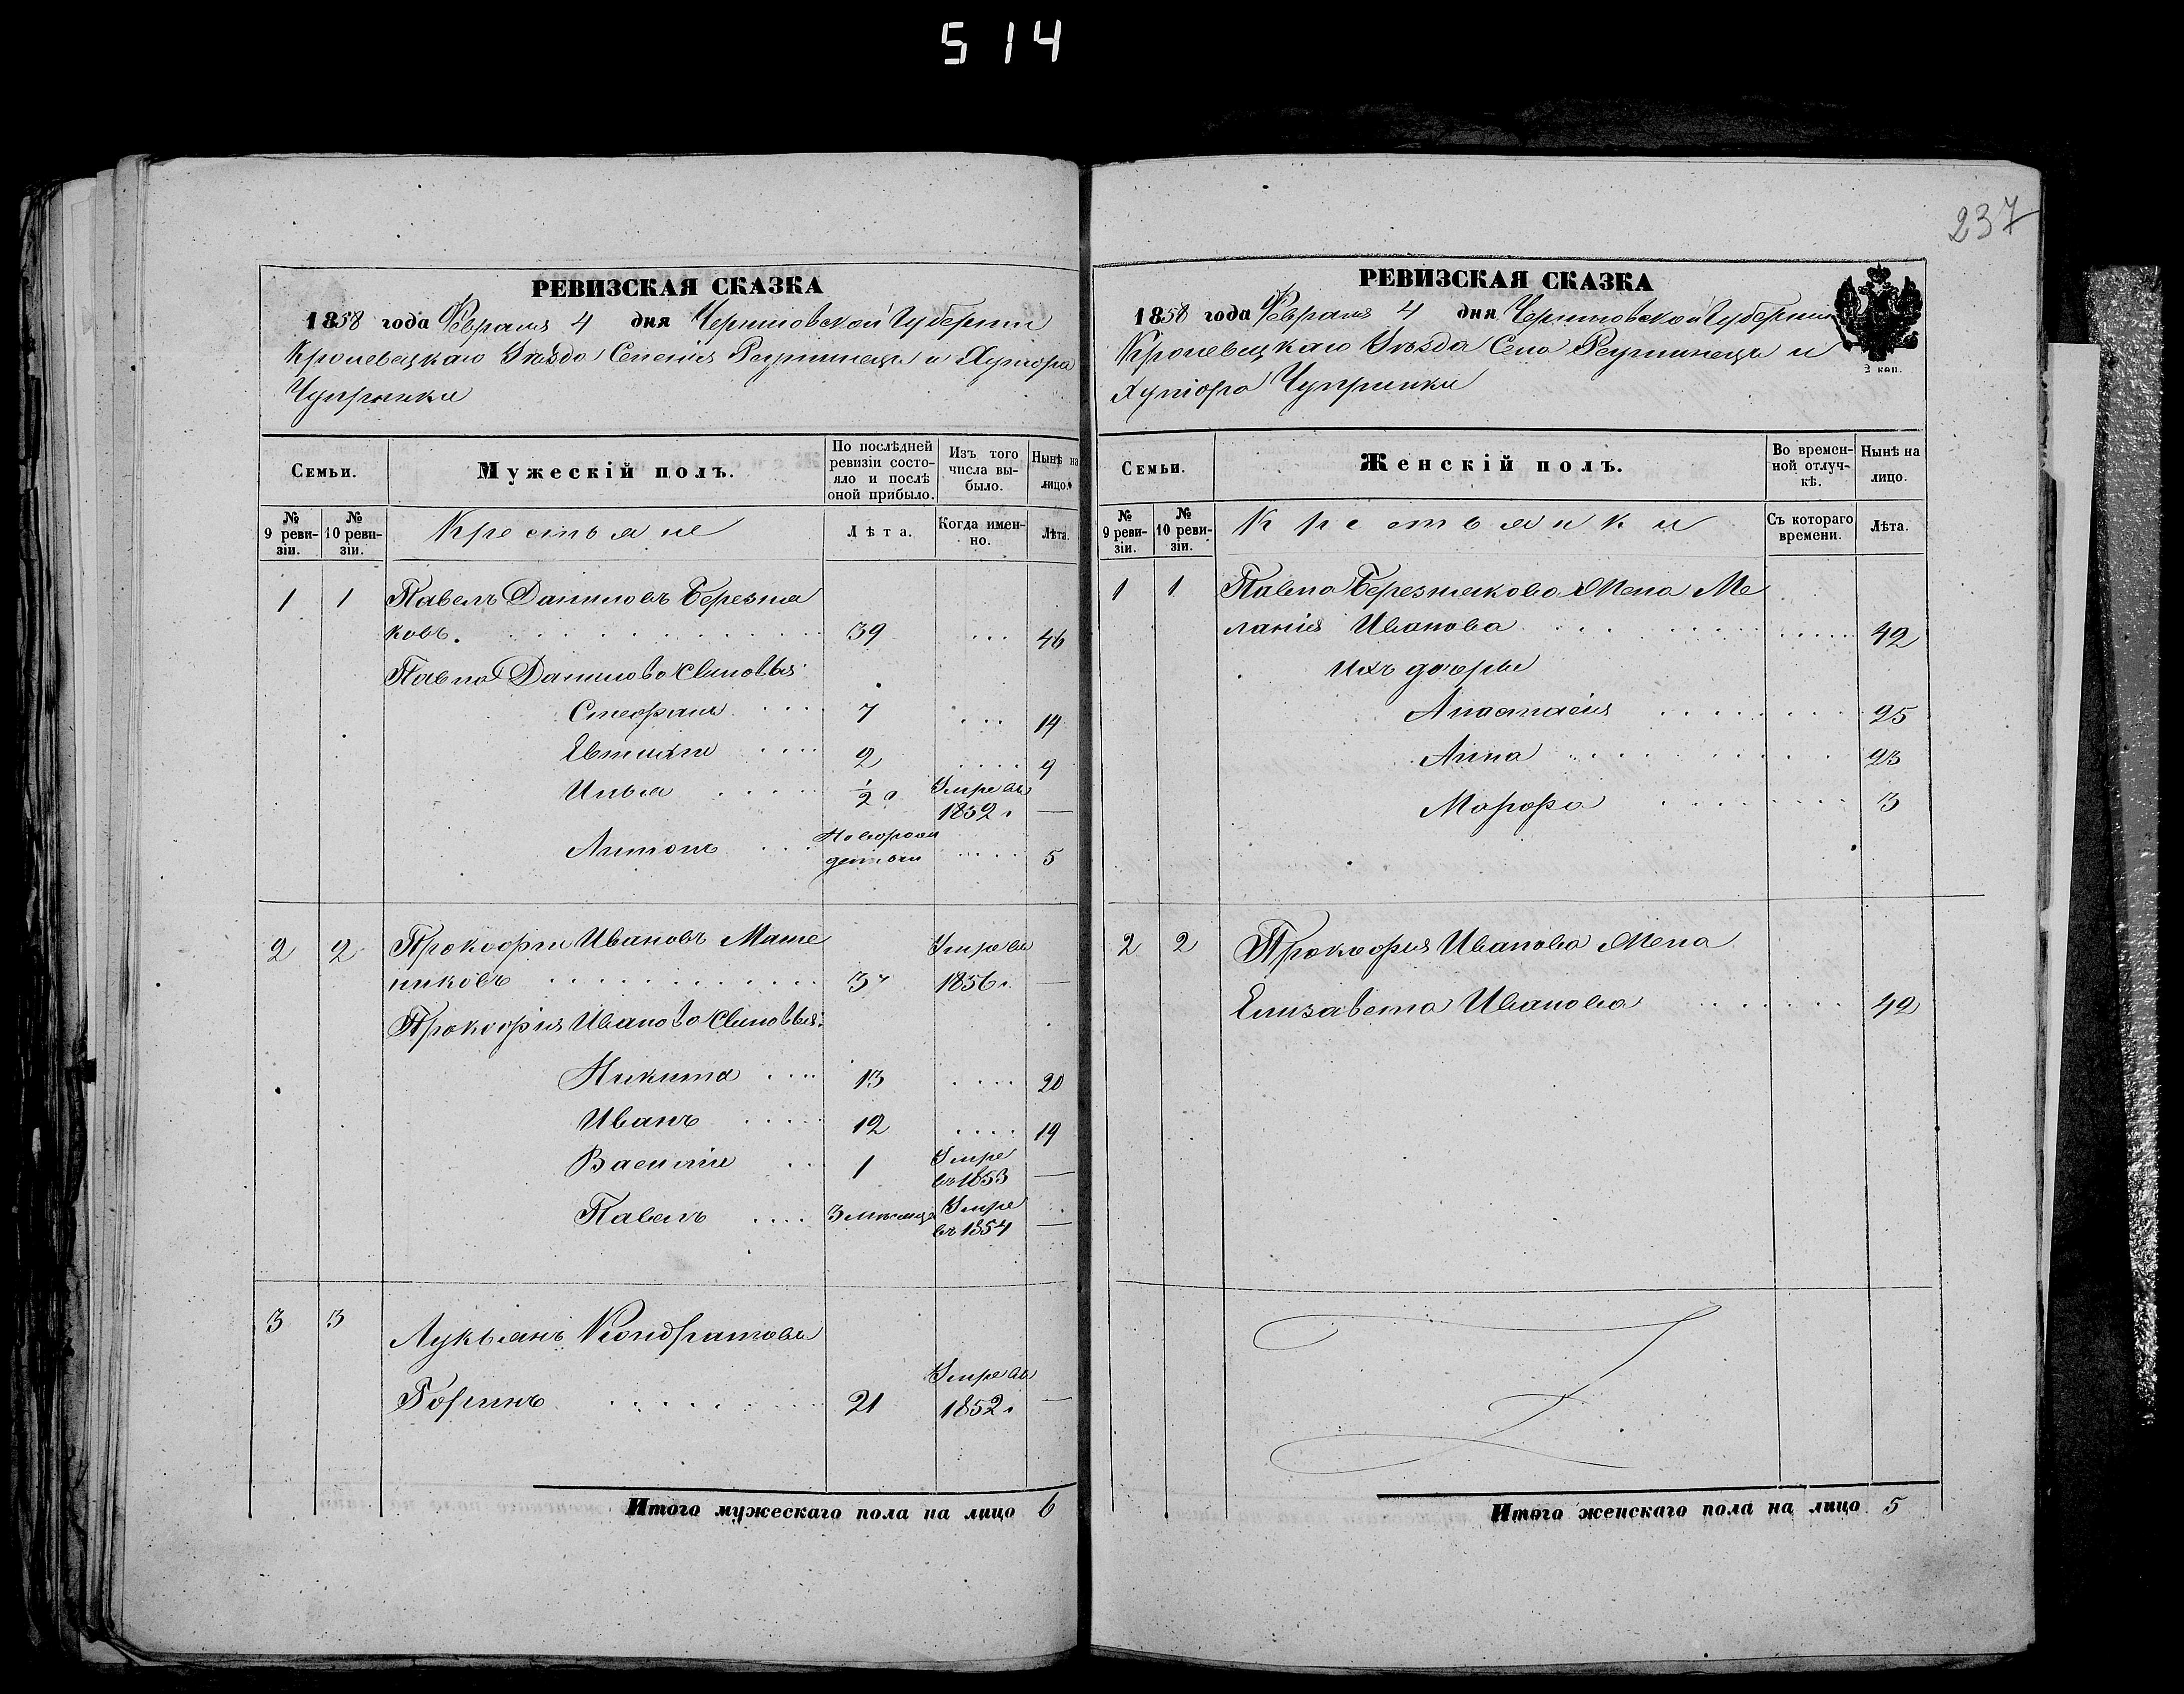 514
237
РЕВИЗСКАЯ СКАЗКА
1858 года Февраля 4 дня Черниговской Губернии
Кролевецкаго Уезда Селенія Реутинецъ и Хутора
Чупринки
Семьи.
Мужескій полъ.
По послѣдней ревизіи состояло и послѣ оной прибыло.
Изъ того числа выбыло.
Нынѣ на лицо.
№ 9 ревизіи.
№ 10 ревизіи.
Крестьяне
Лѣта.
Когда именно.
Лѣта.
1 1 Павелъ Даниловъ Березня
ковъ. 39 46
Павла Данилова Сыновья
Стефанъ 7 14
Евтихій 2 9
Илья 1/2 г Умре въ
1852 г —
Антонъ Новорож
денъ 5
2 2 Прокофій Ивановъ Умре въ
никовъ 37 1856 г. —
Прокофія Иванова Сыновья:
Никита 13 20
Иванъ 12 19
Василій 1 Умре
въ 1853 —
Павелъ 3 месяца Умре
въ 1854 —
3 3 Лукьянъ Кондратовъ
Умре въ
21 1852 г —
Итого мужескаго пола на лицо 6
РЕВИЗСКАЯ СКАЗКА
1858 года Февраля 4 дня Черниговской Губерніи
Кролевецкаго Уезда Села Реутинецъ и
Хутора Чупринки
2 коп.
Семьи.
Женскій полъ.
Во временной отлучкѣ.
Нынѣ на лицо.
№ 9 ревизіи.
№ 10 ревизіи.
Крестьянки
Съ котораго времени.
Лѣта.
1 1 Павла Березнякова Жена Ме
ланія Иванова 42
Ихъ дочери
Анастасія 25
Анна 23
Марфа 3
2 2 Прокофия Иванова Жена
Елизавета Иванова 42
Итого женскаго пола на лицо 5